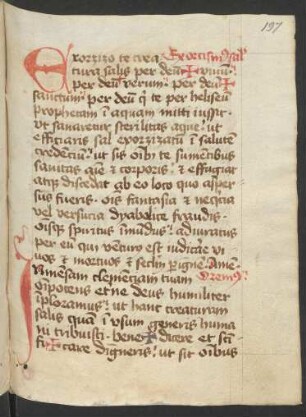 197
Exorzizo te crea Exorcism9 sal
tura salis per deu ✠ viuum
per deu verum per deu ✠
sanctum per deu q te per heliseu
prophetam i aquam mitti iussit
ut sanaretur sterilitas aque ut
efficiaris sal exorzizatu i salute
credenciu ut sis oibz te sumentibus
sanitas aie z corporis z effugiat
atqz discedat ab eo loco quo asper
sus fueris ois fantasia z neqcia
vel versucia dyabolice fraudis
oisqz spiritus imudus adiuratus
per eu qui veturo est iudicare vi
uos z mortuos z seclm p igne Ame
Immesam clemenciam tuam Orem9
oipotens eterne deus humiliter
imploramus ut hanc creaturam
salis quam i usum generis huma
ni tribuisti bene ✠ dicere et sci
fi ✠ care digneris ut sit oibus